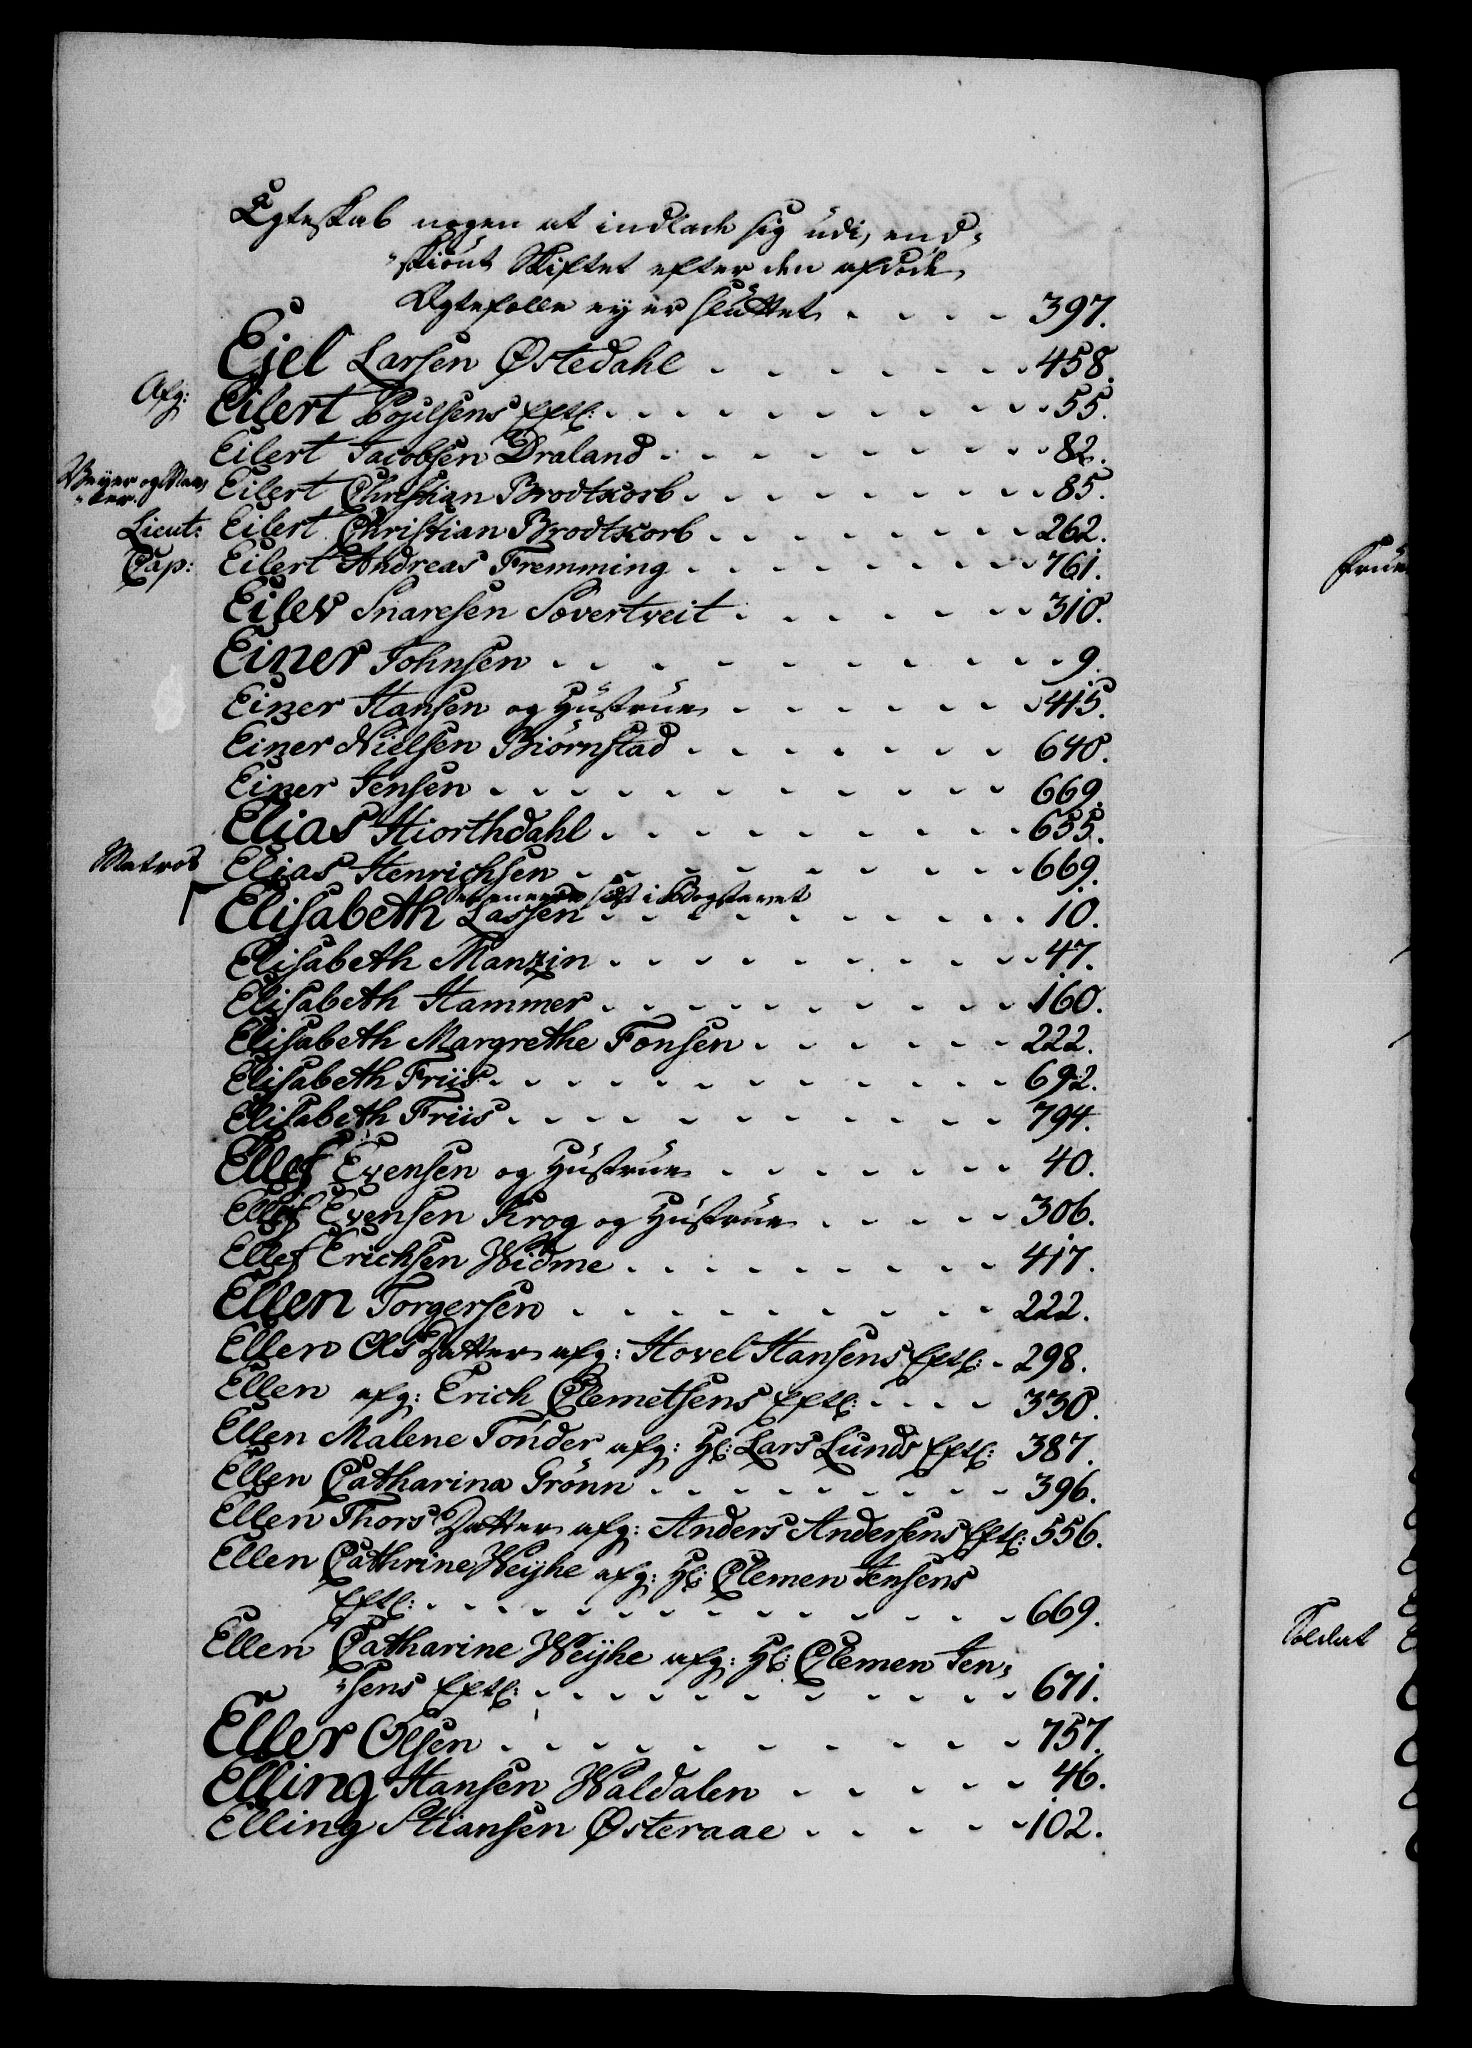 Egteskab nogen at indlade sig udi, end=
=skiönt Skiftet efter den afdöde
Egtefælle ey er sluttet . . . . 397.
Ejel Larsen Østedahl . . . . . . . 458.
Afg: Eilert Bojelsens Eftl: . . . . . . . . . . 55.
Eilert Jacobsen Draland . . . . . . . . . 82.
Veyer og Maa=
=ler. Eilert Christian Brodtkorb . . . . . . . . 85.
Lieut: Eilert Christian Brodtkorb . . . . . . . . 262.
Cap: Eilert Andreas Fremming . . . . . . . . 761.
Eilev Snaresen Sovertveit . . . . . . . 310.
Einer Johnsen . . . . . . . . . . 9.
Einer Hansen og Hustrue . . . . . . . 415.
Einer Nielsen Biörnstad . . . . . . . 640.
Einer Jensen . . . . . . . . . . . 669.
Elias Hiorthdahl . . . . . . . . . . 655.
Matros Elias Henrichsen . . . . . . . . . 669.
sidst i Bogstavet
Elisabeth Lassen . . . . . . . . . . 10.
Elisabeth Manzin . . . . . . . . . . 47.
Elisabeth Hammer . . . . . . . . . . 160.
Elisabeth Margrethe Fonsen . . . . . . . 222.
Elisabeth Friis . . . . . . . . . . . 692.
Elisabeth Friis . . . . . . . . . . . 794.
Ellef Evensen og Hustrue . . . . . . . 40.
Ellef Evensen Krog og Hustrue . . . . . 306.
Ellef Erichsen Widme . . . . . . . . . 417.
Ellen Torgersen . . . . . . . . . . 222.
Ellen Ols Datter afg: Hovel Hansens Eftl: . 298.
Ellen afg: Erich Clemetsens Eftl: . . . . 330.
Ellen Malene Tönder afg: Hl: Lars Lunds Eftl: 387.
Ellen Catharina Grönn . . . . . . . . . 396.
Ellen Thors Datter afg: Anders Andersens Eftl: 556.
Ellen Cathrine Weyhe afg: Hl: Clemen Jensens
Eftl: . . . . . . . . . . . . . 669.
Ellen Catharine Weyhe afg: Hl: Clemen Jen=
=sens Eftl: . . . . . . . . . . . 671.
Eller Olsen . . . . . . . . . . . 757.
Elling Hansen Waldalen . . . . . 46.
Elling Stiansen Østeraae . . . . . 102.
Soldat